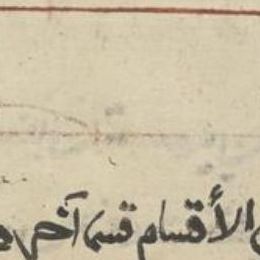 الأقسام قسما آخر